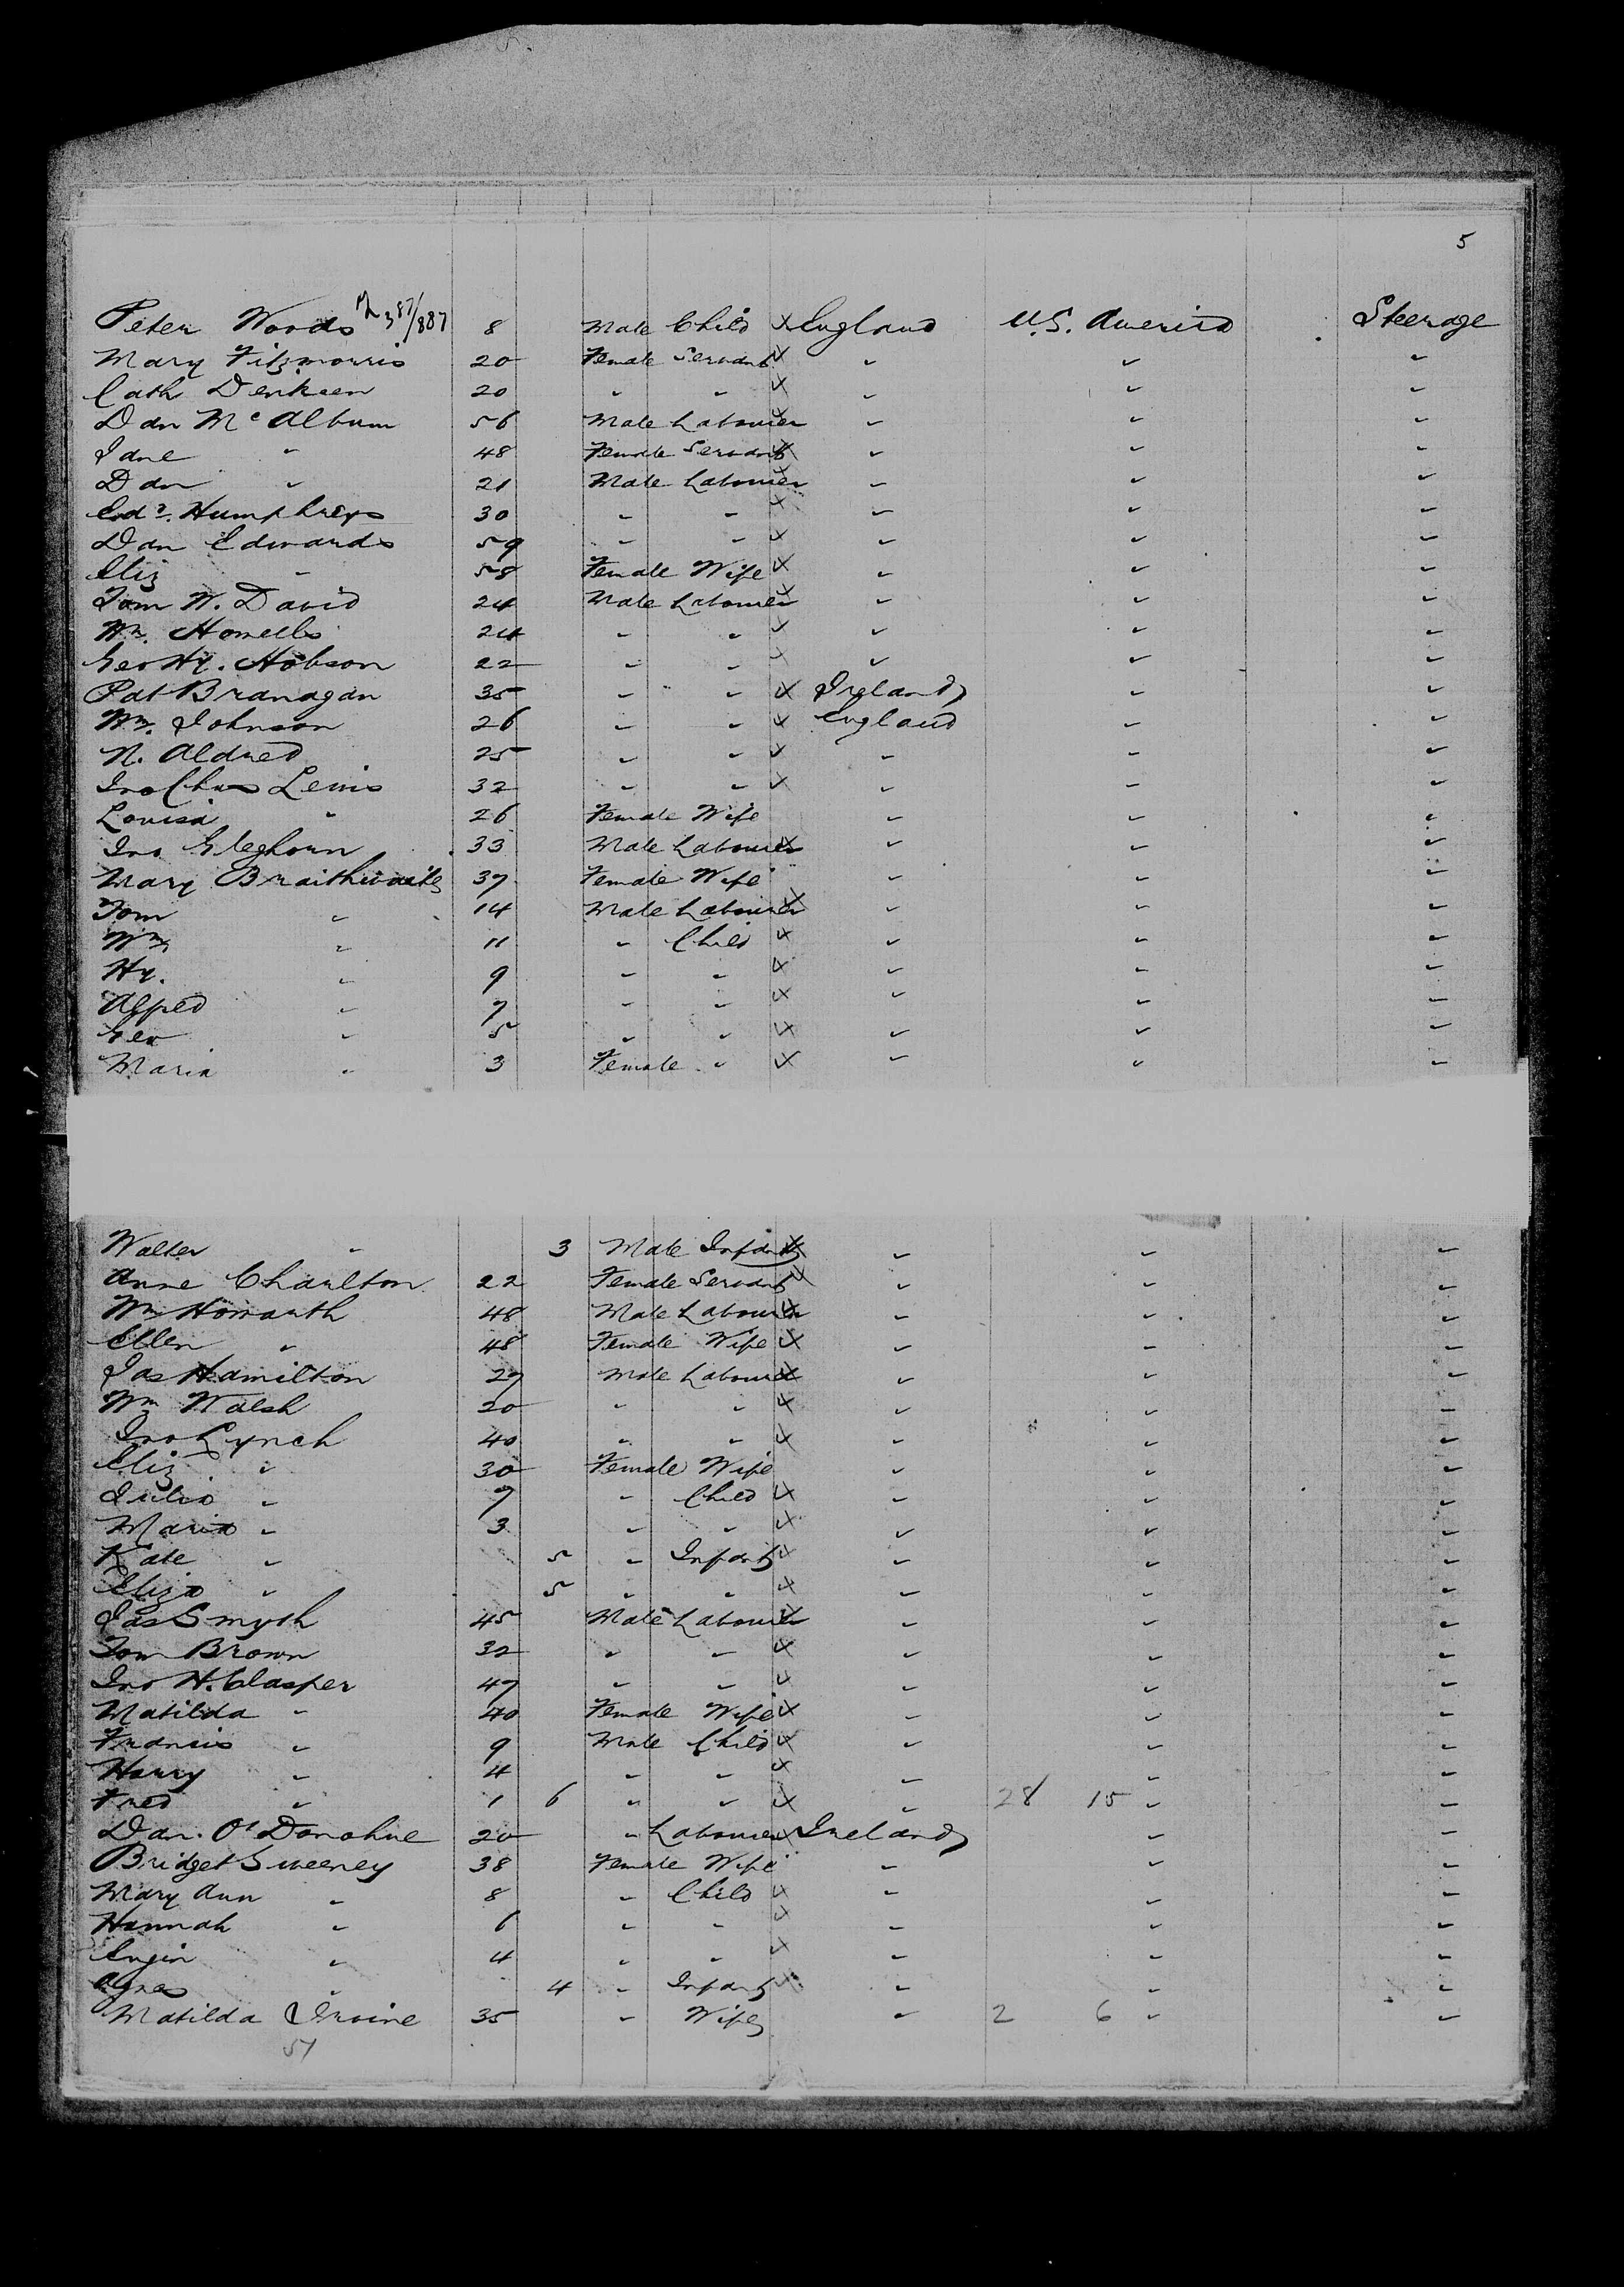 5
Peter Woods 387/887 8 Male Child X England U.S. America Steerage
Mary Fitzmorris 20 Female Servant X " " "
Cath Denksen 20 " " X " " "
Dan McAlbum 56 Male Labourer X " " "
Jane " 48 Female Servant X " " "
Dan " 21 Male Labourer X " " "
Edd. Humphreys 30 " " X " " "
Dan Edwards 59 " " X " " "
Eliz " 58 Female Wife X " " "
Tom W. David 24 Male Labourer X " " "
Wm. Howells 24 " " X " " "
Geo Hy. Hobson 22 " " X " " "
Pat Branagan 35 " " X Ireland " "
Wm. Johnson 26 " " X England " "
N. Aldred 25 " " X " " "
Jno Chas Lewis 32 " " X " " "
Louisa " 26 Female Wife " " "
Jno Gleghorn 33 Male Labourer X " " "
Mary Braithwaite 37 Female Wife " " "
Tom " 14 Male Labourer X " " "
Wm " 11 " Child X " " "
Hy. " 9 " " X " " "
Alfred " 7 " " X " " "
Geo " 5 " " X " " "
Maria " 3 Female " X " " "
Walter " 3 Male Infant X " " "
Anne Charlton 22 Female Servant X " " "
Wm Howarth 48 Male Labourer X " " "
Ellen " 48 Female Wife X " " "
Jas Hamilton 27 Male Labourer X " " "
Wm Walsh 20 " " X " " "
Jno Lynch 40 " " X " " "
Eliz " 30 Female Wife " " "
Julia " 7 " Child X " " "
Maria " 3 " " X " " "
Kate " 5 " Infant X " " "
Eliza " 5 " " X " " "
Jas Smyth 45 Male Labourer X " " "
Tom Brown 32 " " X " " "
Jno H. Clasper 47 " " X " " "
Matilda " 40 Female Wife X " " "
Francis " 9 Male Child X " " "
Harry " 4 " " X " " "
Fred " 1 6 " " X " 28 15 " "
Dan. O'Donohue 20 " Labourer X Ireland " "
Bridget Sweeney 38 Female Wife " " "
Mary Ann " 8 " Child X " " "
Hannah " 6 " " X " " "
" 4 " " X " " "
Agnes " 4 " Infant X " " "
Matilda Irvine 35 " Wife " 2 6 " "
51